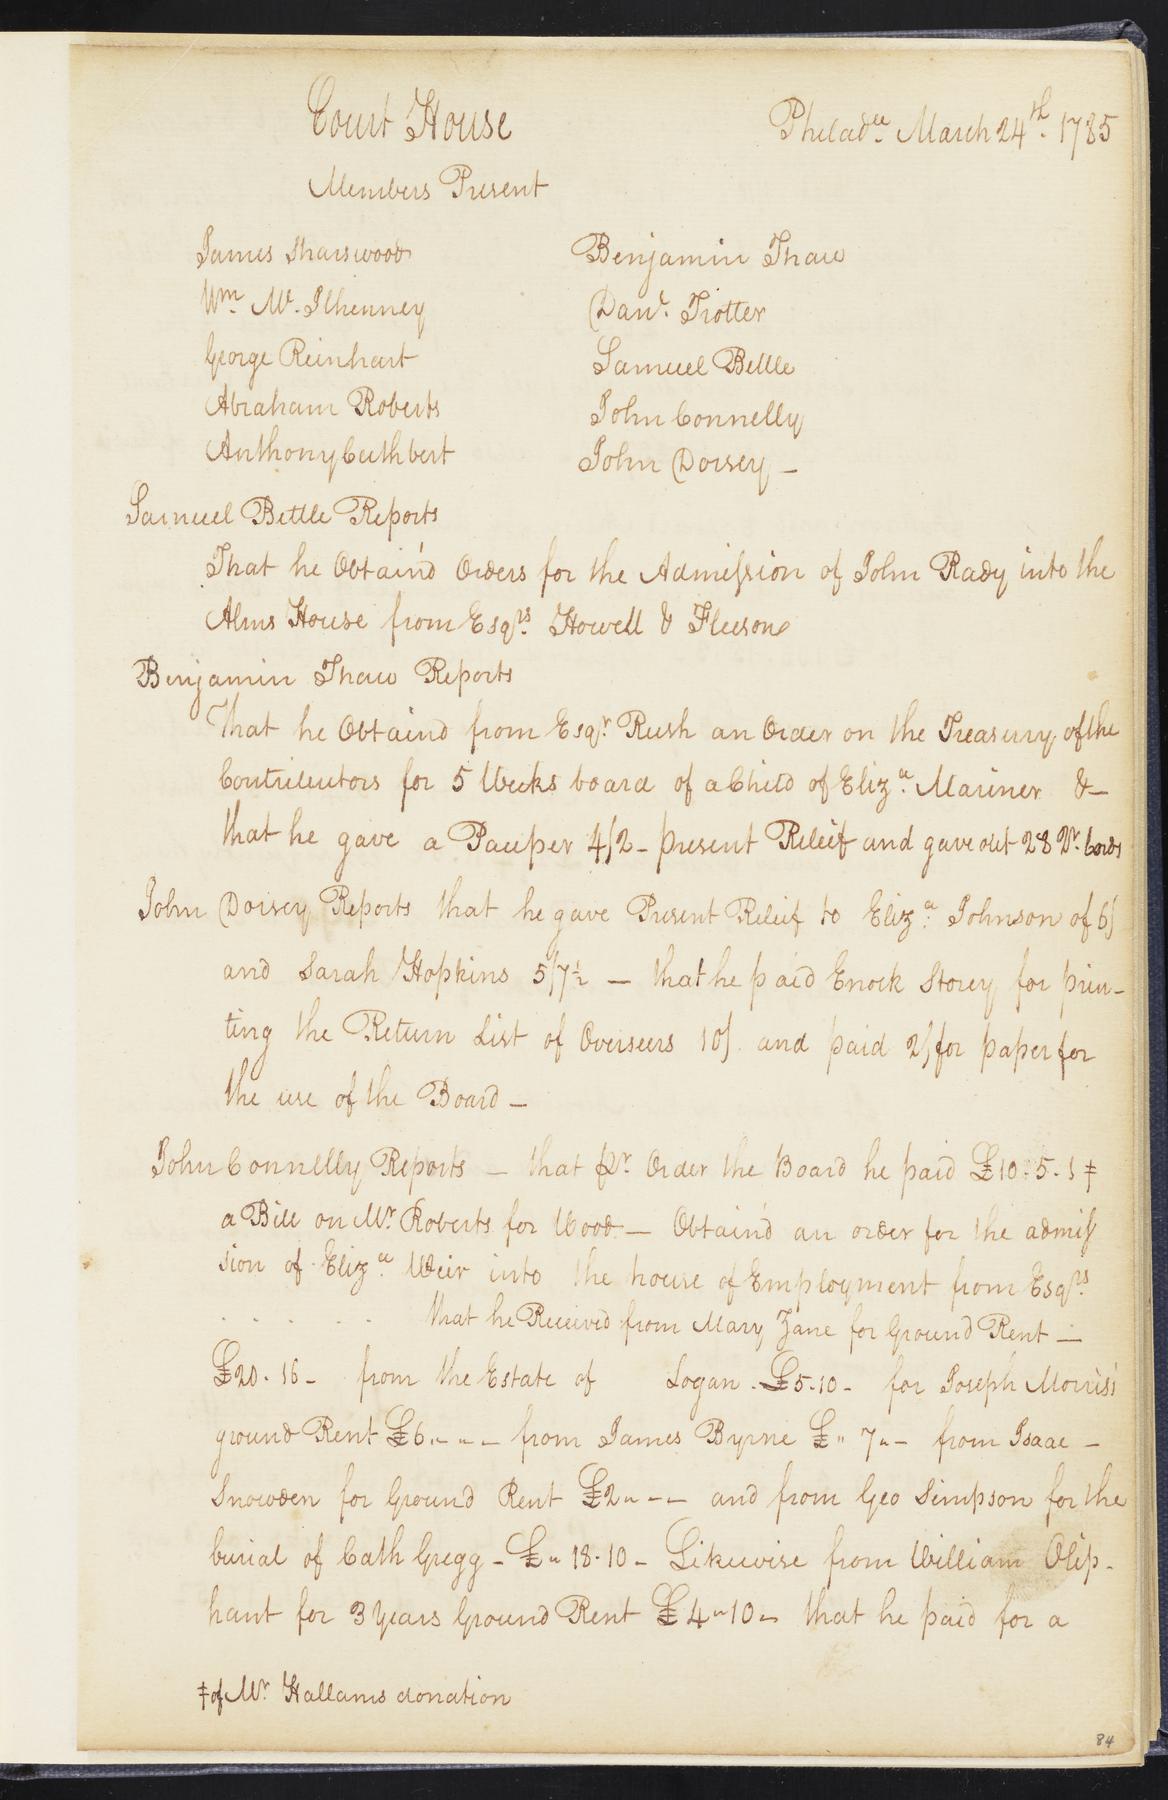 Court House
Philad.ᵃ March 24.ᵗʰ 1785
Members Present
James Sharswood
Benjamin Thaw
Wm. Mc. Ilhenney
Danl. Trotter
George Reinhart
Samuel Bettle
Abraham Roberts
John Connelly
Anthony Cuthbert
John Dorsey –
Samuel Bettle Reports
That he Obtain'd Orders for the Admission of John Rady into the
Alms House from Esqrs. Howell & Fleeson
Benjamin Thaw Reports
That he Obtaind from Esqr. Rush an Order on the Treasury of the
Contributors for 5 Weeks board of a Child of Eliz.ᵃ Mariner &–
that he gave a Pauper 4/2 – present Releif and gave out 28 Qr. Cords
John Dorsey Reports that he gave Present Releif to Eliz.ᵃ Johnson of 6/
and Sarah Hopkins 5/7½ – that he paid Enock Storey for prin-
ting the Return List of Overseers 10/ and paid 2/ for paper for
the use of the Board –
John Connelly Reports – that pr. Order the Board he paid £10.5.1 ‡
a Bill on Mr. Roberts for Wood – Obtain'd an order for the admis
sion of Eliz.ᵃ Weir into the house of Employment from Esqrs.
. . . . . . that he Received from Mary Zane for Ground Rent –
£20.16 – from the Estate of Logan . £5.10 – for Joseph Morris's
ground Rent £6 " – " – from James Byrne £ " 7 " – from Isaac –
Snowden for Ground Rent £2 " – " – and from Geo Simpson for the
burial of Cath Gregg – £ " 18.10 – Likewise from William Olip-
hant for 3 Years Ground Rent £4 " 10 " – that he paid for a
‡ of Mr. Hallams donation
84